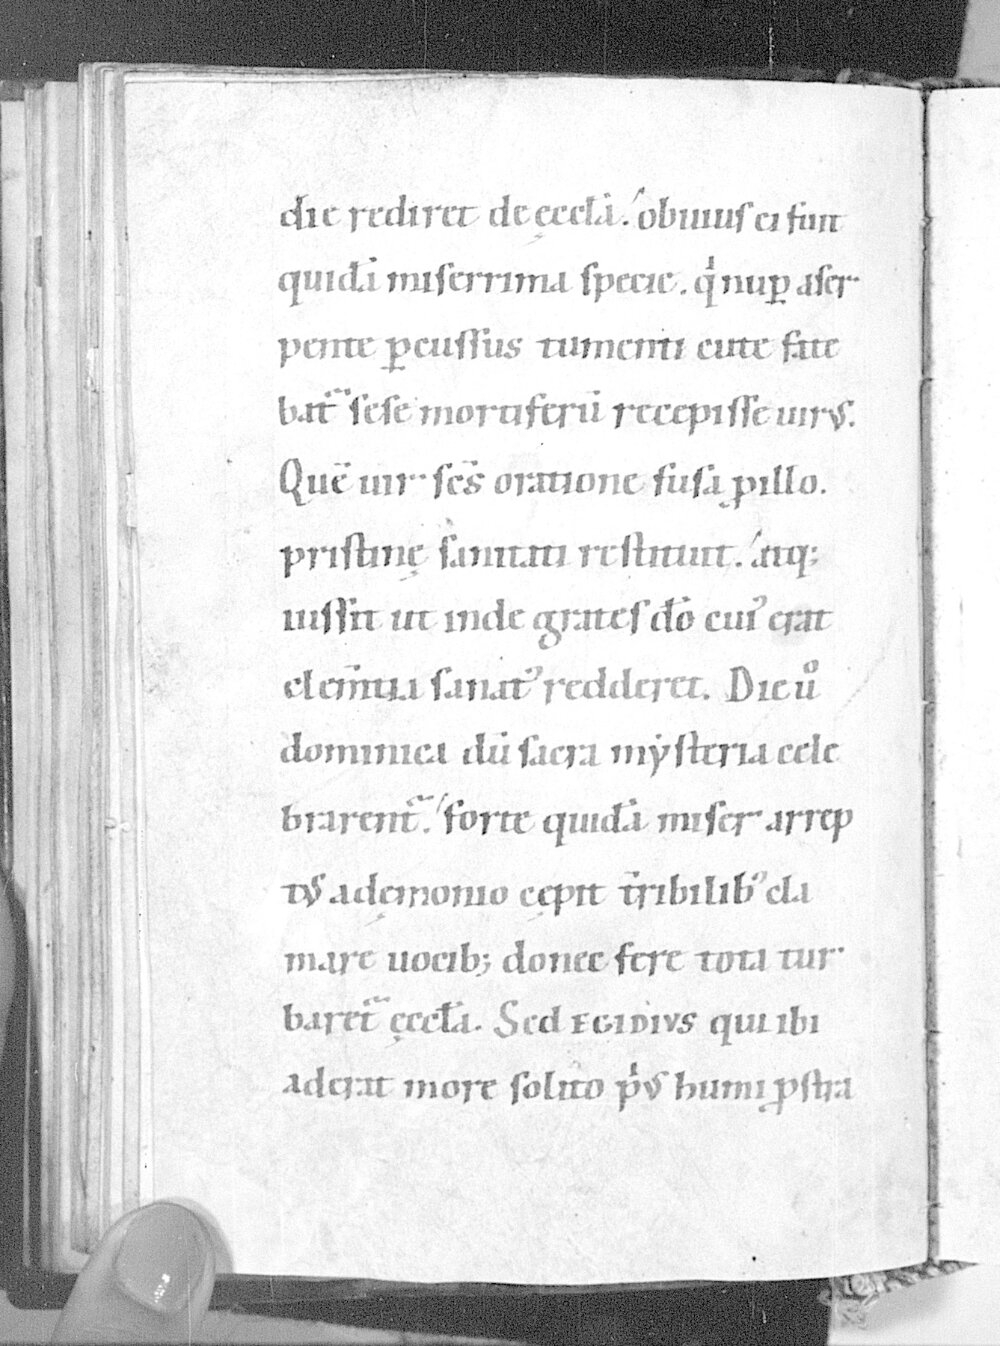 die rediret de ęccła̅. obuius ei fuit
quida̅ miserrima specie. qⁱ nup̲ a ser
pente p̲cussus tumenti cute fate
bat᷑ sese mortiferu̅ recepisse uirus.
Que̅ uir sc̅s oratione fusa ꝓ illo.
pristinę sanitati restituit. atq;
iussit ut inde grates do̅ cui᷒ erat
clem̅tia sanat᷒ redderet. Die ů
dominica du̅ sacra mẏsteria cele
brarent᷑. forte quida̅ miser arrep
tus a dęmonio cępit t̅ribilib᷒ cla
mare uocib; donec fere tota tur
baret᷑ ęccła̅. Sed EGIDIVS qui ibi
aderat more solito pⁱus humi ꝓstra